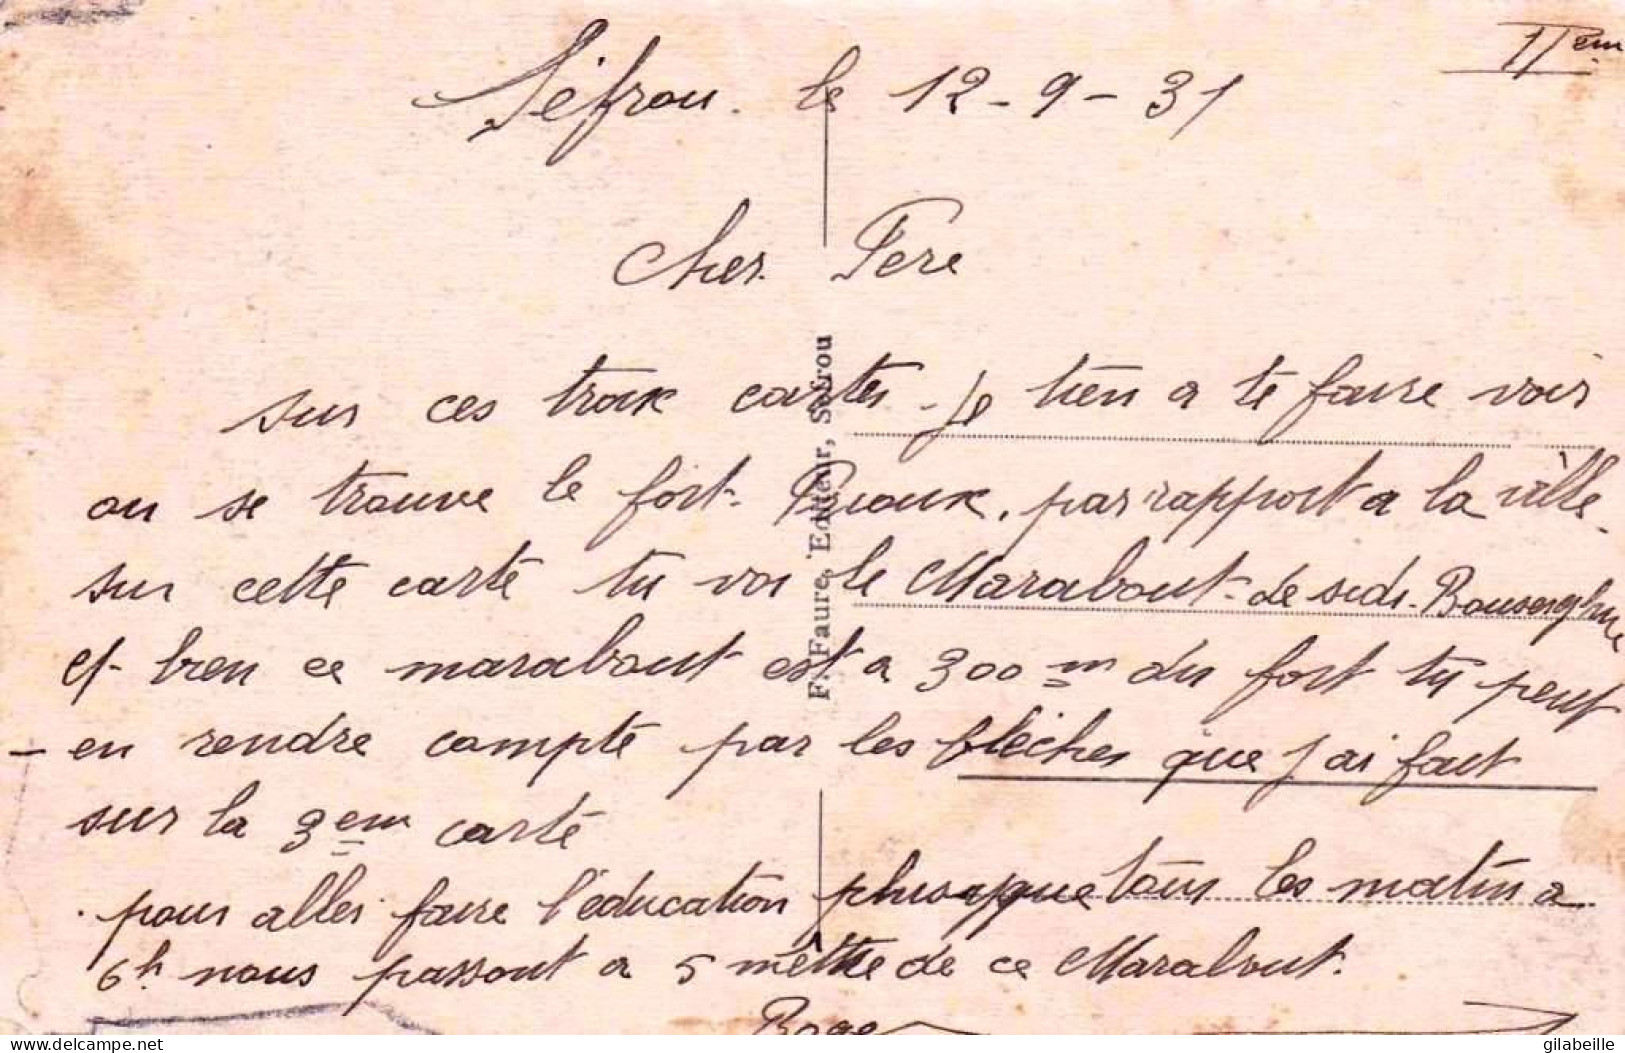 IIem
Séfrou. le 12-9-31
Cher Père
sur ces troix cartes je tien a te faire voir
ou se trouve le fort Prioux, par rapport a la ville.
sur cette carte tu voi le Marabout de sidi
et bien ce marabout est a 300 m du fort tu peut
en rendre compte par les flèches que j'ai fait
sur la 3em carte
pour aller faire l'éducation phisique tous les matin a
6h nous passont a 5 mettre de ce Marabout.
Roger
F. Faure, Editeur, Sefrou
delcampe.net
gilabeille